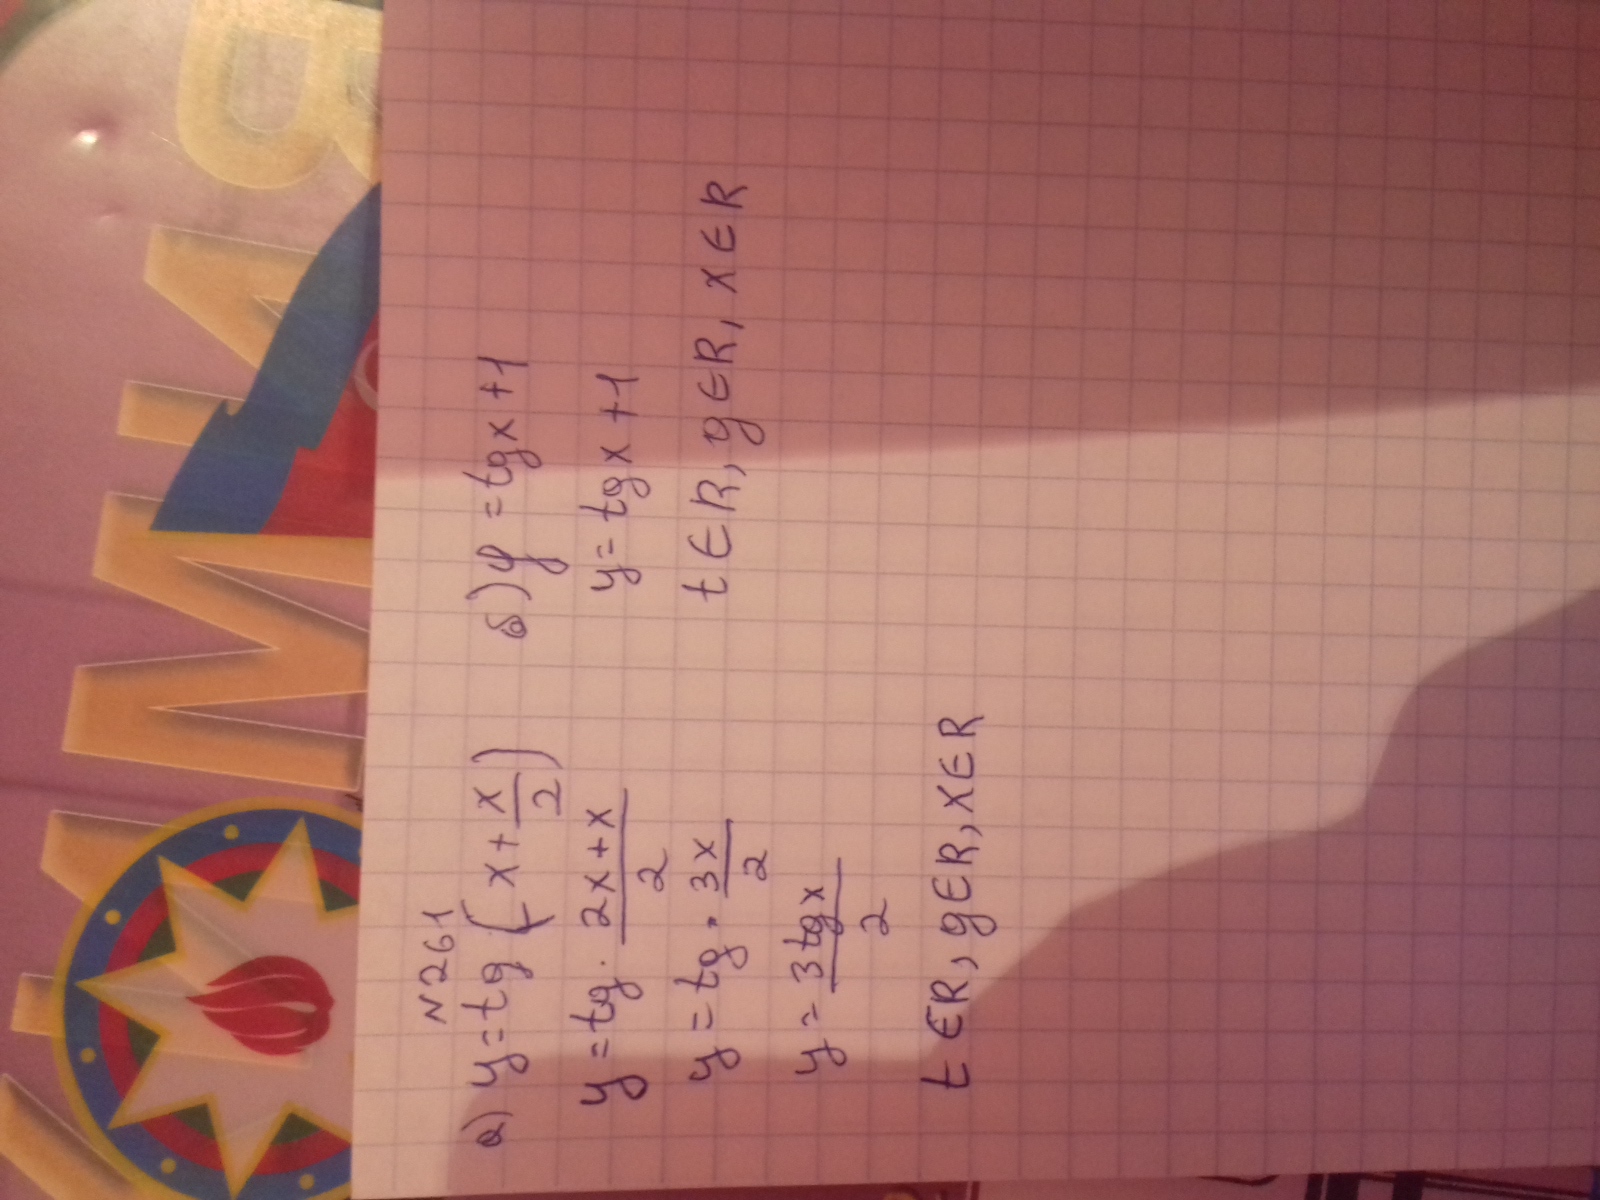 N261
а) y = tg (x + x/2)
y = tg · (2x + x)/2
y = tg · 3x/2
y = 3tgx/2
t ∈ R, g ∈ R, x ∈ R
б) y = tgx + 1
y = tgx + 1
t ∈ R, g ∈ R, x ∈ R